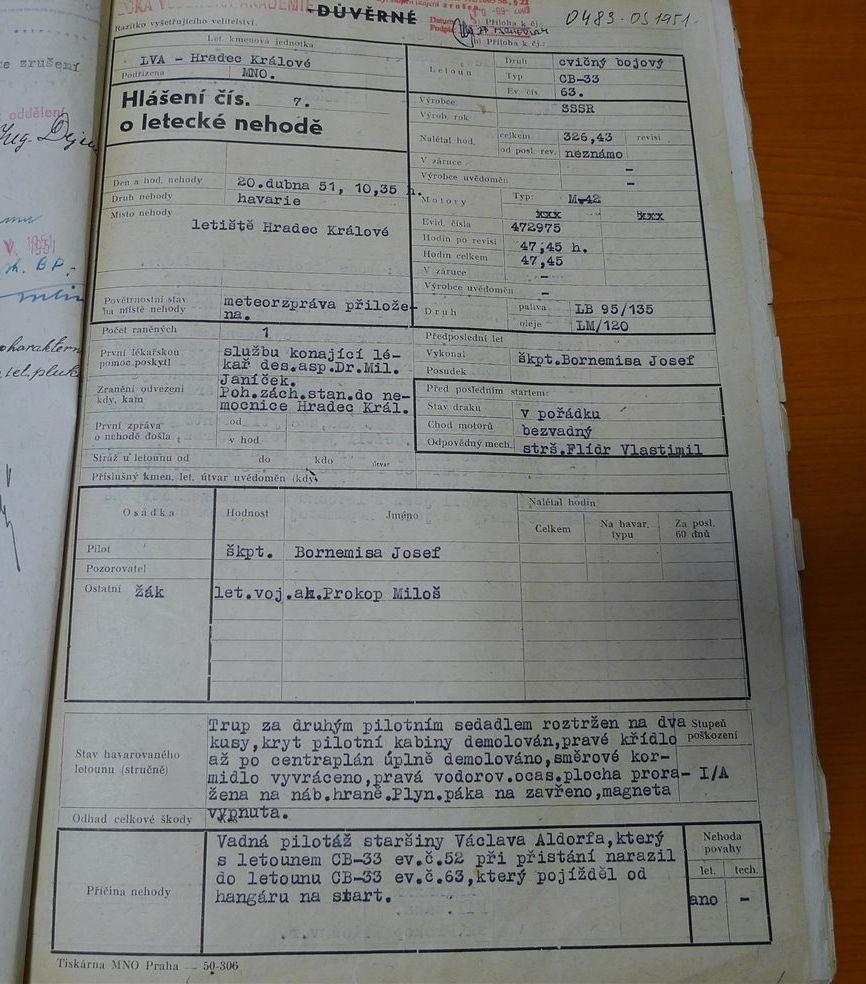 DŮVĚRNÉ
Razítko vyšetřujícího velitelství.
Příloha k čj.
Příloha k čj.:
0483-OS 1951.
ke zrušení
oddělení
V. 1951
Let. kmenová jednotka
LVA - Hradec Králové
Podřízena MNO.
Hlášení čís. 7.
o letecké nehodě
Den a hod. nehody 20.dubna 51, 10,35 h.
Druh nehody havarie
Místo nehody
letiště Hradec Králové
Povětrnostní stav meteorzpráva přilože-
na místě nehody na.
Počet raněných 1
První lékařskou službu konající lé-
pomoc poskytl kař des.asp.Dr.Mil.
Janíček.
Zranění odvezeni Poh.zách.stan.do ne-
kdy, kam mocnice Hradec Král.
První zpráva od
o nehodě došla v hod.
Stráž u letounu od do kdo útvar
Příslušný kmen. let. útvar uvědoměn (kdy)
Letoun
Druh cvičný bojový
Typ CB-33
Ev. čís. 63.
Výrobce SSSR
Výrob. rok
Nalétal hod. celkem 326,43 revisí
od posl. rev. neznámo
V záruce -
Výrobce uvědoměn -
Motory Typ: M-42
xxx xxx
Evid. čísla 472975
Hodin po revisi 47,45 h.
Hodin celkem 47,45
V záruce -
Výrobce uvědoměn -
Druh paliva LB 95/135
oleje LM/120
Předposlední let
Vykonal škpt.Bornemisa Josef
Posudek
Před posledním startem:
Stav draku v pořádku
Chod motorů bezvadný
Odpovědný mech. strš.Flídr Vlastimil
Osádka Hodnost Jméno Nalétal hodin
Celkem Na havar. typu Za posl. 60 dnů
Pilot škpt. Bornemisa Josef
Pozorovatel
Ostatní žák let.voj.ak.Prokop Miloš
Stav havarovaného
letounu (stručně)
Trup za druhým pilotním sedadlem roztržen na dva
kusy,kryt pilotní kabiny demolován,pravé křídlo
až po centraplán úplně demolováno,směrové kor-
midlo vyvráceno,pravá vodorov.ocas.plocha prora-
žena na náb.hraně.Plyn.páka na zavřeno,magneta
vypnuta.
Stupeň
poškození
I/A
Odhad celkové škody
Příčina nehody
Vadná pilotáž staršiny Václava Aldorfa,který
s letounem CB-33 ev.č.52 při přistání narazil
do letounu CB-33 ev.č.63,který pojížděl od
hangáru na start.
Nehoda
povahy
let. tech.
ano -
Tiskárna MNO Praha — 50-306